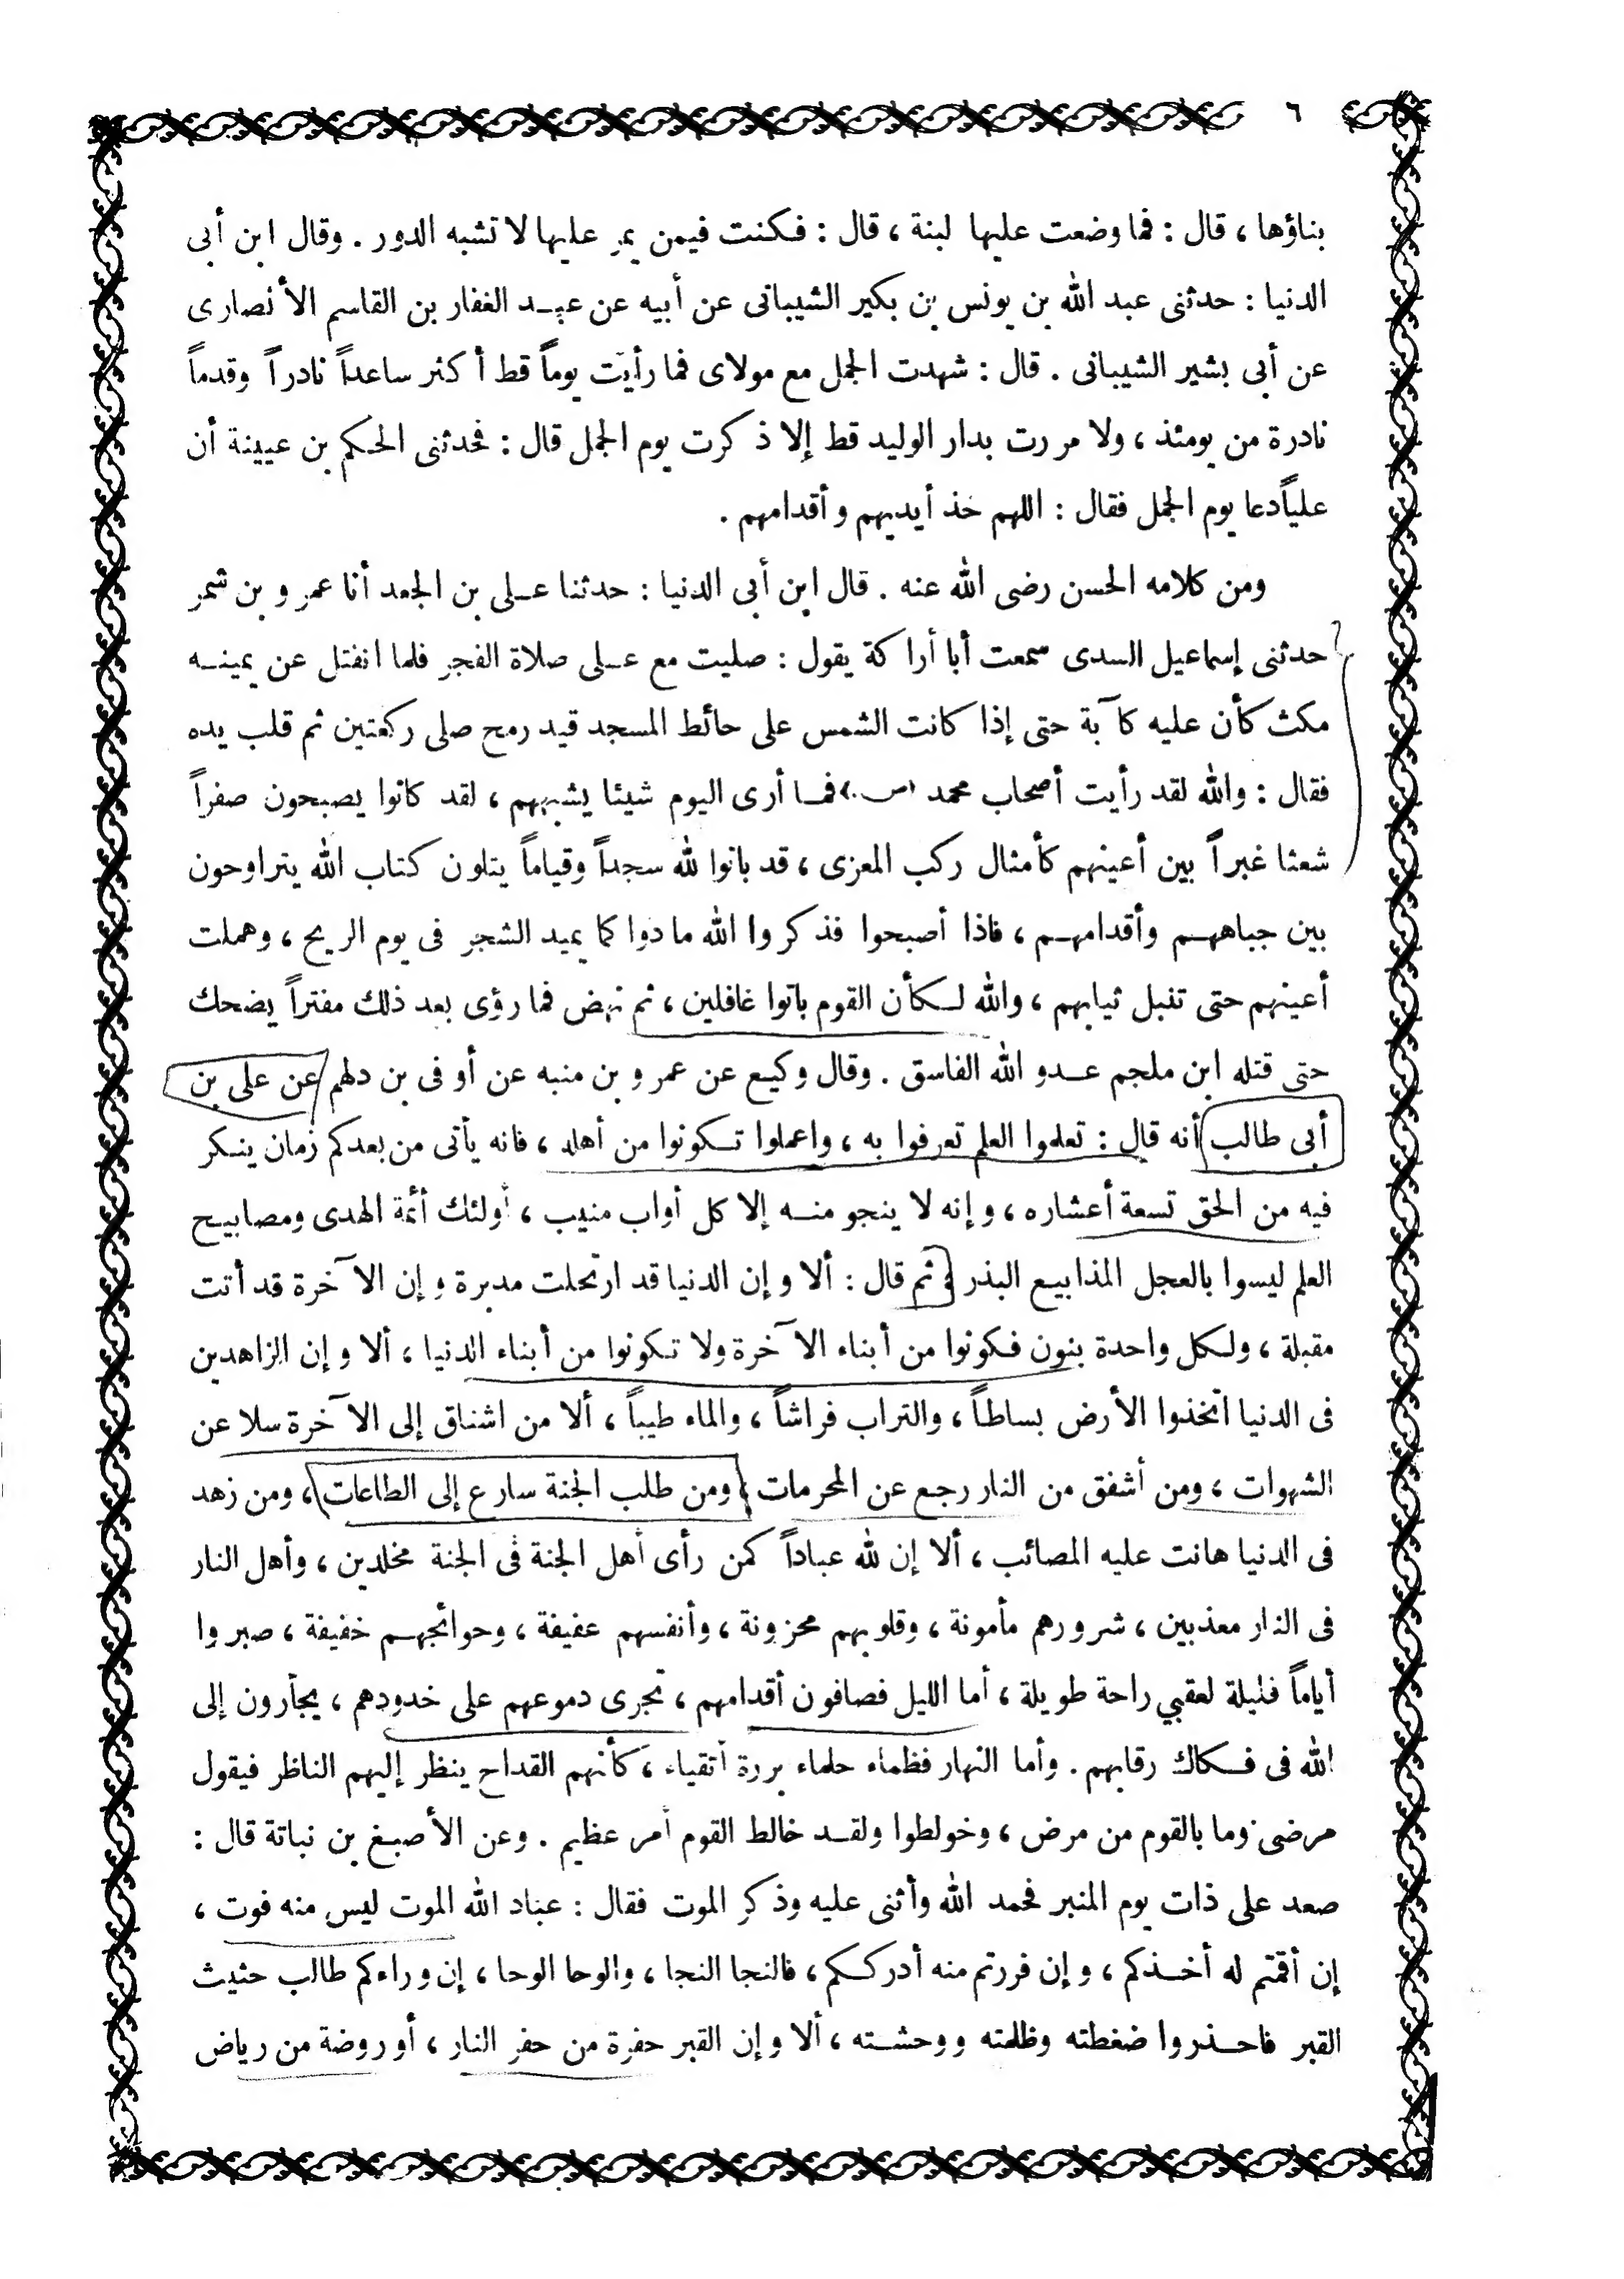 ٦
بناؤها ، قال : فما وضعت عليها لبنة ، قال : فكنت فيمن يمر عليها لا تشبه الدور . وقال ابن أبى
الدنيا : حدثنى عبد الله بن يونس بن بكير الشيبانى عن أبيه عن عبد الغفار بن القاسم الأنصارى
عن أبى بشير الشيبانى . قال : شهدت الجمل مع مولاى فما رأيت يوماً قط أكثر ساعداً نادراً وقدماً
نادرة من يومئذ ، ولا مررت بدار الوليد قط إلا ذكرت يوم الجمل قال : فحدثنى الحكم بن عيينة أن
علياً دعا يوم الجمل فقال : اللهم خذ أيديهم وأقدامهم .
ومن كلامه الحسن رضى الله عنه . قال ابن أبى الدنيا : حدثنا على بن الجعد أنا عمرو بن شمر
حدثنى إسماعيل السدى سمعت أبا أراكة يقول : صليت مع على صلاة الفجر فلما انفتل عن يمينه
مكث كأن عليه كآبة حتى إذا كانت الشمس على حائط المسجد قيد رمح صلى ركعتين ثم قلب يده
فقال : والله لقد رأيت أصحاب محمد (ص.) فما أرى اليوم شيئا يشبههم ، لقد كانوا يصبحون صفراً
شعثا غبراً بين أعينهم كأمثال ركب المعزى ، قد باتوا لله سجداً وقياماً يتلون كتاب الله يتراوحون
بين جباههم وأقدامهم ، فاذا أصبحوا فذكروا الله مادوا كما يميد الشجر فى يوم الريح ، وهملت
أعينهم حتى تنبل ثيابهم ، والله لكأن القوم باتوا غافلين ، ثم نهض فما رؤى بعد ذلك مفتراً يضحك
حتى قتله ابن ملجم عدو الله الفاسق . وقال وكيع عن عمرو بن منبه عن أوفى بن دلهم عن على بن
أبى طالب أنه قال : تعلموا العلم تعرفوا به ، واعملوا تكونوا من أهله ، فانه يأتى من بعدكم زمان ينكر
فيه من الحق تسعة أعشاره ، وإنه لا ينجو منه إلا كل أواب منيب ، أولئك أئمة الهدى ومصابيح
العلم ليسوا بالعجل المذاييع البذر ثم قال : ألا وإن الدنيا قد ارتحلت مدبرة وإن الآخرة قد أتت
مقبلة ، ولكل واحدة بنون فكونوا من أبناء الآخرة ولا تكونوا من أبناء الدنيا ، ألا وإن الزاهدين
فى الدنيا اتخذوا الأرض بساطاً ، والتراب فراشاً ، والماء طيباً ، ألا من اشتاق إلى الآخرة سلا عن
الشهوات ، ومن أشفق من النار رجع عن المحرمات ، ومن طلب الجنة سارع إلى الطاعات ، ومن زهد
فى الدنيا هانت عليه المصائب ، ألا إن لله عباداً كمن رأى أهل الجنة فى الجنة مخلدين ، وأهل النار
فى النار معذبين ، شرورهم مأمونة ، وقلوبهم محزونة ، وأنفسهم عفيفة ، وحوائجهم خفيفة ، صبروا
أياماً قليلة لعقبي راحة طويلة ، أما الليل فصافون أقدامهم ، تجرى دموعهم على خدودهم ، يجأرون إلى
الله فى فكاك رقابهم . وأما النهار فظماء حلماء بررة أتقياء ، كأنهم القداح ينظر إليهم الناظر فيقول
مرضى وما بالقوم من مرض ، وخولطوا ولقد خالط القوم أمر عظيم . وعن الأصبغ بن نباتة قال :
صعد على ذات يوم المنبر فحمد الله وأثنى عليه وذكر الموت فقال : عباد الله الموت ليس منه فوت ،
إن أقمتم له أخذكم ، وإن فررتم منه أدرككم ، فالنجا النجا ، والوحا الوحا ، إن وراءكم طالب حثيث
القبر فاحذروا ضغطته وظلمته ووحشته ، ألا وإن القبر حفرة من حفر النار ، أو روضة من رياض